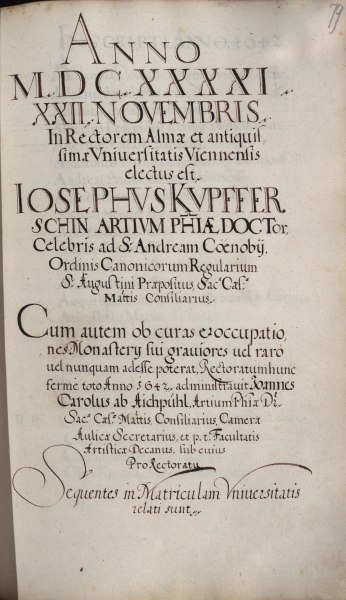 79
ANNO
M.D C.XXXXI
XXII. NOVEMBRIS.
In Rectorem Almæ et antiquis-
simæ Vniuersitatis Viennensis
electus est.
IOSEPHVS KVPFFER
SCHIN ARTIVM PHIÆ DOCTor.
Celebris ad S. Andream Cœnobÿ.
Ordinis Canonicorum Regularium
S. Augustini Præpositus, Sac. Cæs.
Mattis Consiliarius.
Cum autem ob curas et occupatio-
nes Monastery sui grauiores uel raro
uel nunquam adesse poterat, Rectoratum hunc
ferme toto Anno 1642. administrauit Joannes
Carolus ab Aichpühl, Artium Phiæ Dr.
Sac. Cæs. Mattis. Consiliarius, Cameræ
Aulicæ Secretarius, et p. t. Facultatis
Artisticæ Decanus, sub cuius
Pro Rectoratu
Sequentes in Matriculam Vniuersitatis
relati sunt.